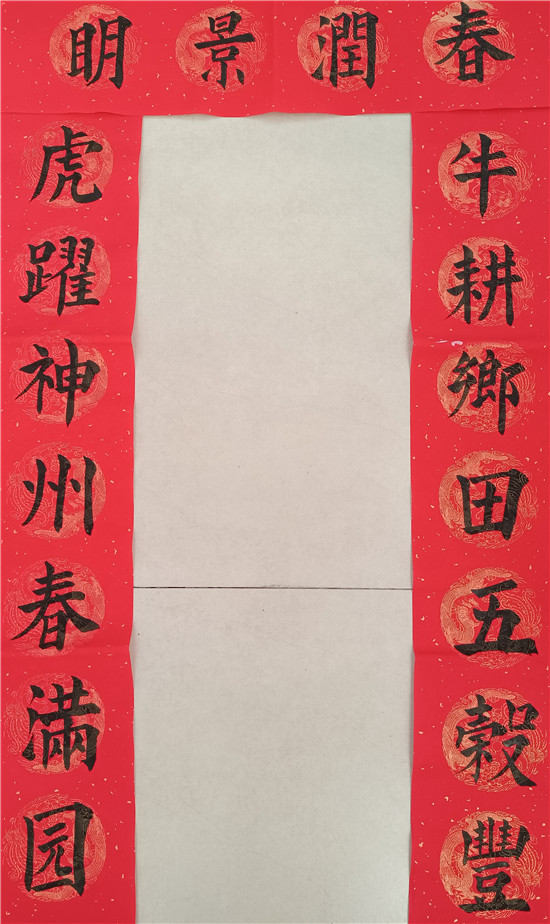 春潤景明
牛耕鄉田五穀豐
虎躍神州春滿园